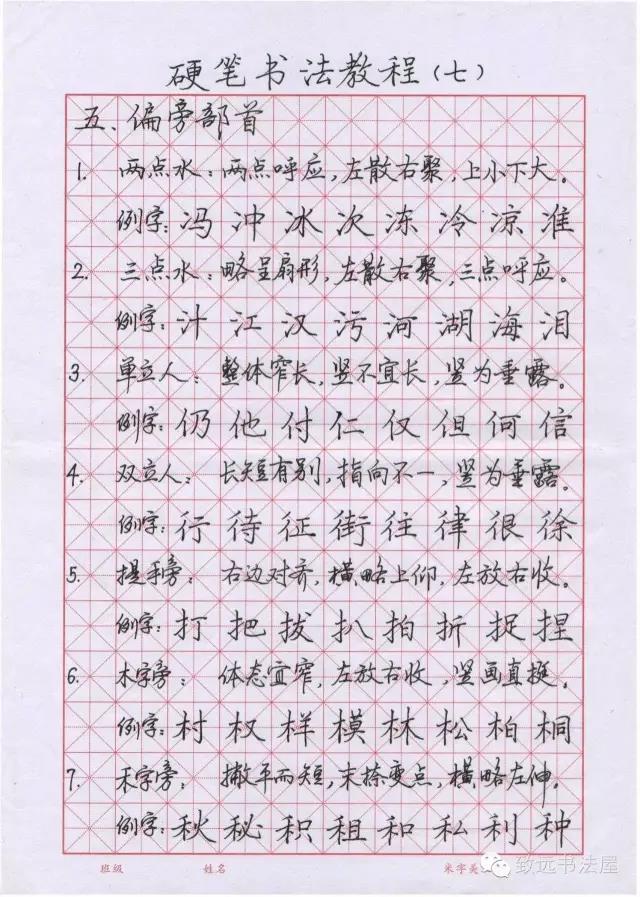 硬笔书法教程（七）
五、偏旁部首
1. 两点水：两点呼应，左散右聚，上小下大。
例字：冯 冲 冰 次 冻 冷 凉 准
2. 三点水：略呈扇形，左散右聚，三点呼应。
例字：汁 江 汉 污 河 湖 海 泪
3. 单立人：整体窄长，竖不宜长，竖为垂露。
例字：仍 他 付 仁 仅 但 何 信
4. 双立人：长短有别，指向不一，竖为垂露。
例字：行 待 征 街 往 律 很 徐
5. 提手旁：右边对齐，横略上仰，左放右收。
例字：打 把 拔 扒 拍 折 捉 捏
6. 木字旁：体态宜窄，左放右收，竖画直挺。
例字：村 权 样 模 林 松 柏 桐
7. 禾字旁：撇平而短，末捺变点，横略左伸。
例字：秋 秘 积 租 和 私 利 种
班级 姓名 米字美
致远书法屋